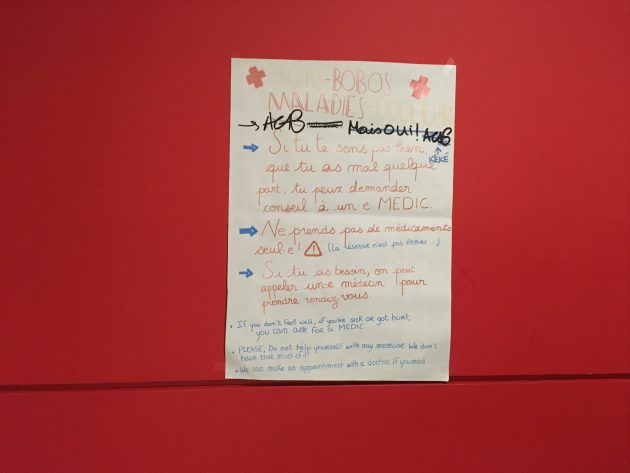 SOINS-BOBOS
MALADIES DOULEURS
→ AGAB Mais OUI! AGAB
→ Si tu te sens pas bien,
KÉKÉ
que tu as mal quelque
part, tu peux demander
conseil à un·e MEDIC.
→ Ne prends pas de médicaments
seul·e! (La réserve n'est pas énorme...)
→ Si tu as besoin, on peut
appeler un·e médecin pour
prendre rendez-vous.
• If you don't feel well, if you're sick or got hurt,
you can ask for a MEDIC
• PLEASE, Do not help yourself with any medecine. We don't
have that much of it.
• We can make an appointment with a doctor if you need